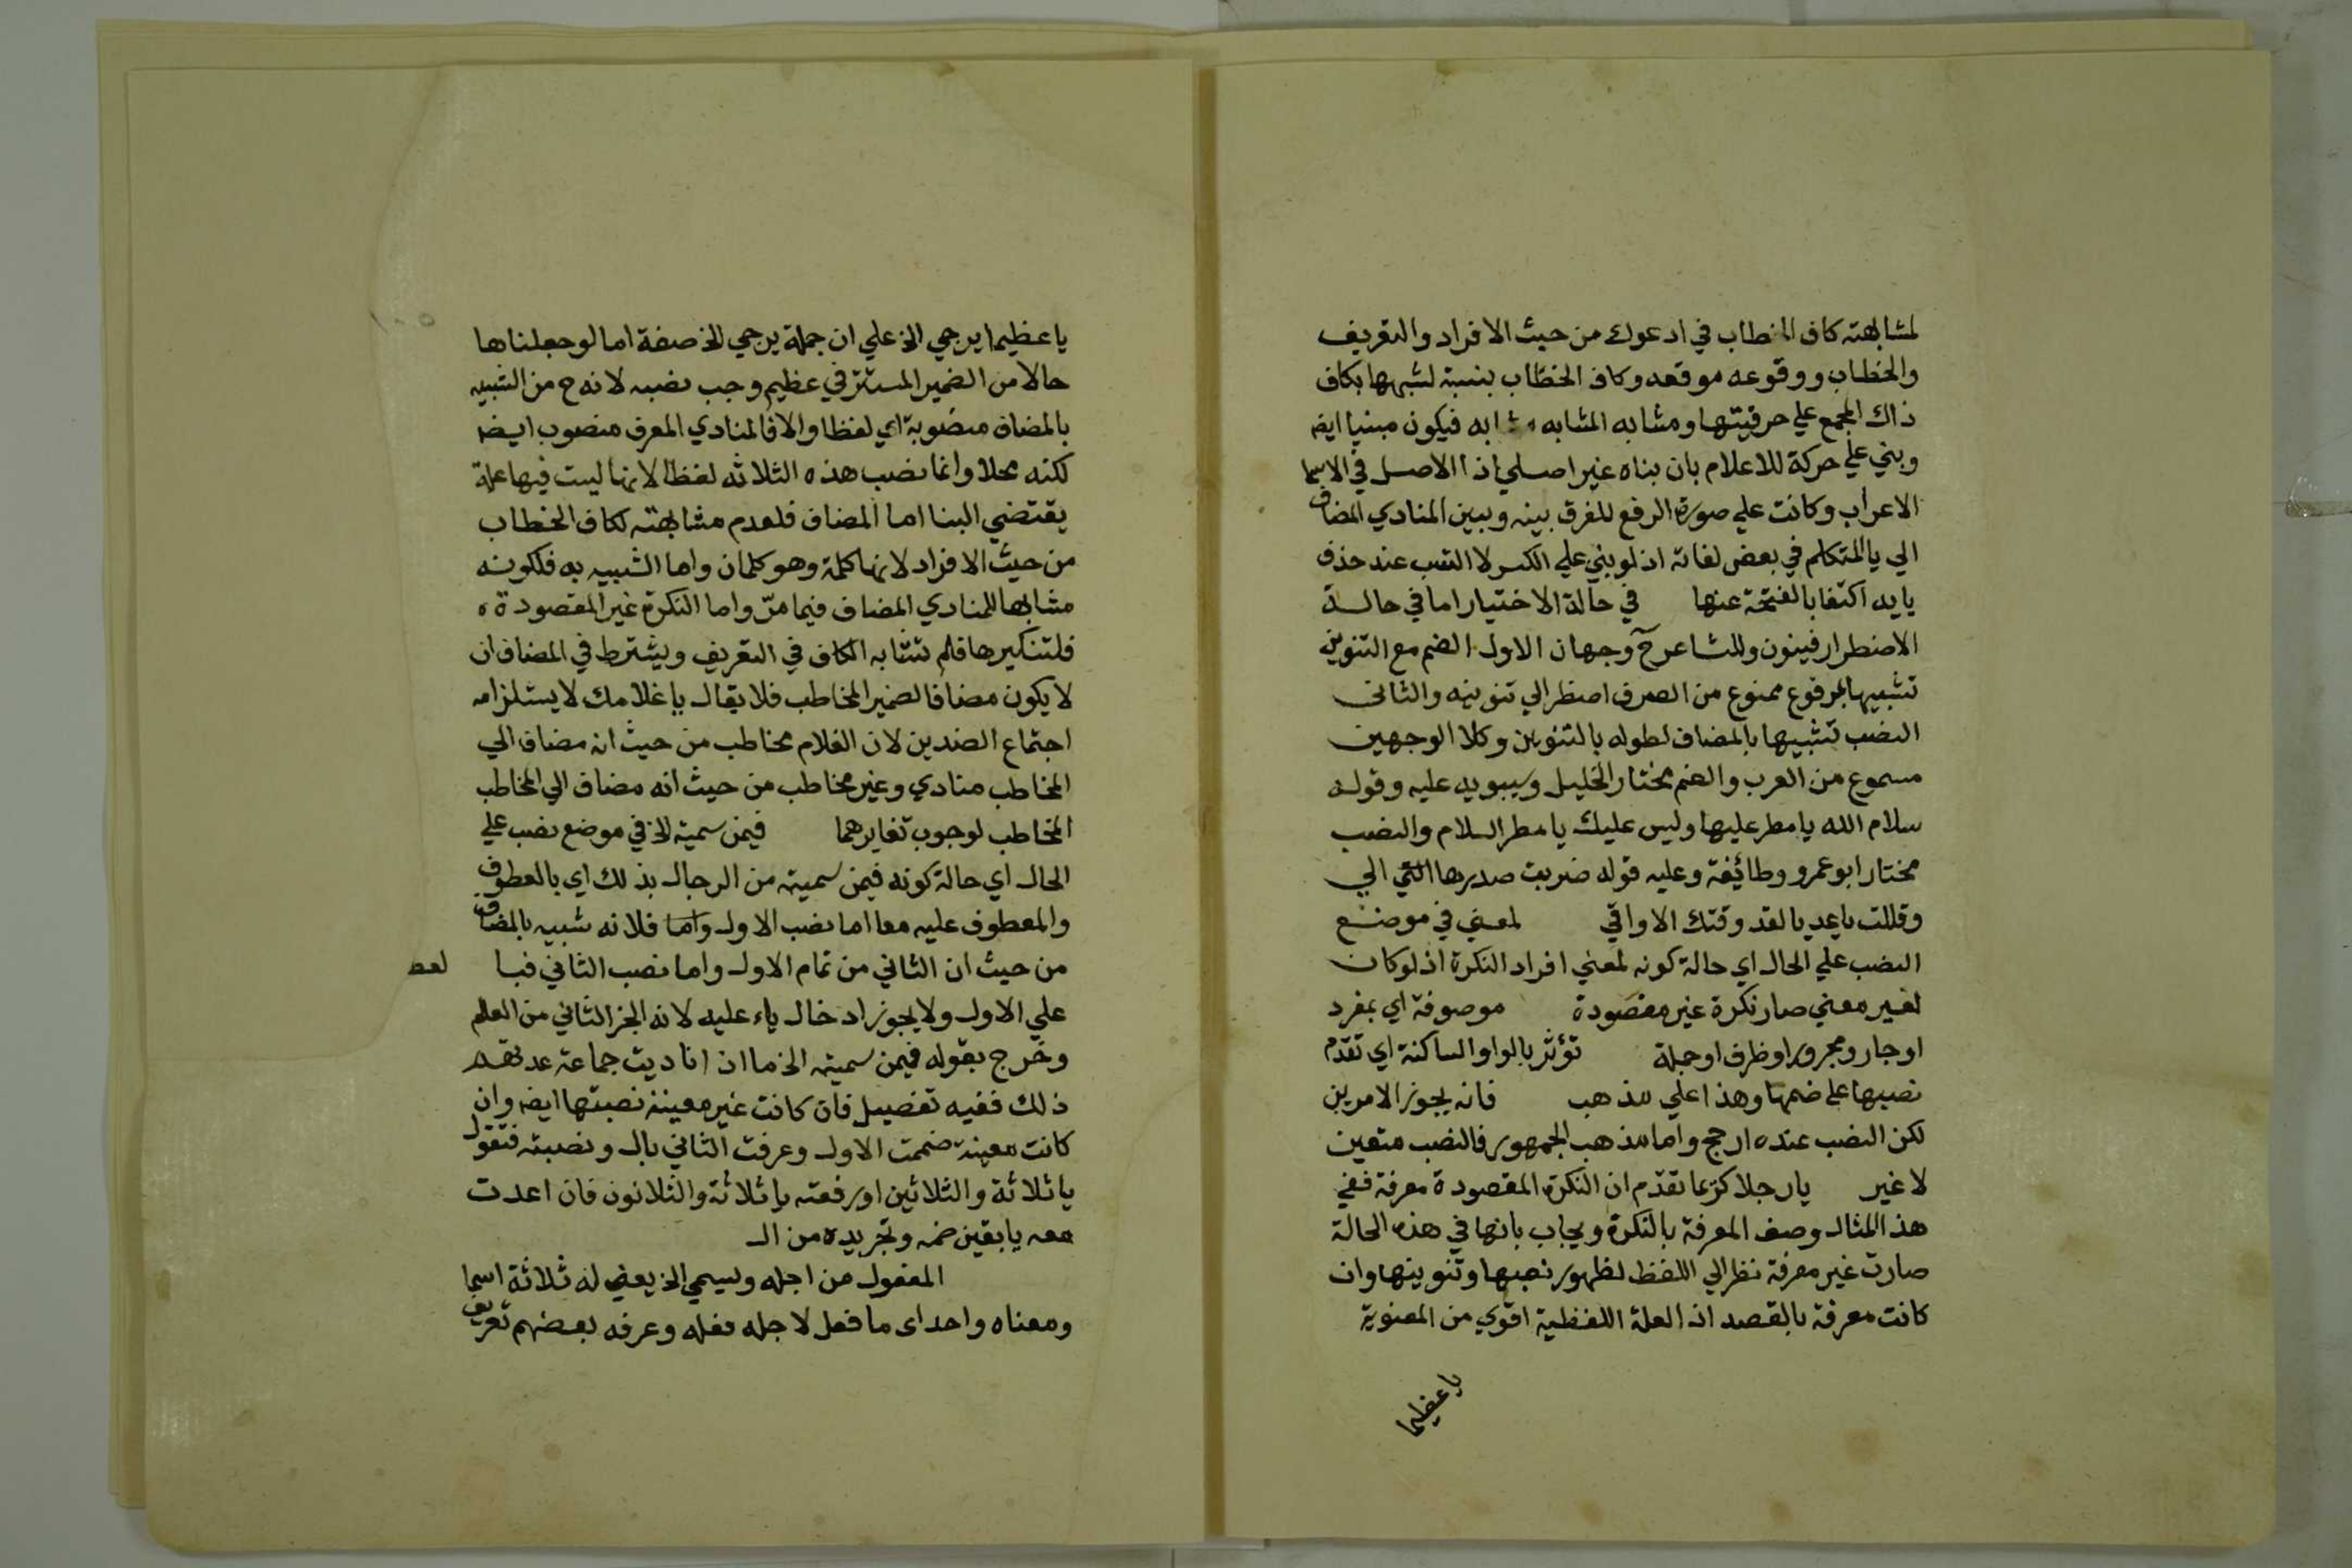 لمشابهته كاف الخطاب في ادعوك من حيث الافراد والتعريف
والخطاب ووقوعه موقعه وكاف الخطاب بنسبة لشبهها بكاف
ذاك المجمع علي حرفيتها ومشابه المشابه مشابه فيكون مبنيا ايض
وبني علي حركة للاعلام بان بناه غير اصلي اذ الاصل في الاسما
الاعراب وكانت علي صورة الرفع للفرق بينه وبين المنادي المضاف
الي يا المتكلم في بعض لغاته اذ لو بني علي الكسر لا التبب عند حذف
يايه اكتفا بالفتحة عنها في حالة الاختيار اما في حالة
الاضطرار فينون وللشاعر ح وجهان الاول الضم مع التنوين
تشبيها بمرفوع ممنوع من الصرف اضطر الي تنوينه والثاني
النصب تشبيها بالمضاف لطوله بالتنوين وكلا الوجهين
مسموع من العرب والضم مختار الخليل وسيبويه عليه وقوله
سلام الله يا مطر عليها وليس عليك يا مطر السلام والنصب
مختار ابو عمرو وطائفة وعليه قوله ضربت صدرها التي الي
وقللت يا عديا لقد وقتك الاواقي لمعني في موضع
النصب علي الحال اي حالة كونه لمعني افراد النكرة اذ لو كان
لغير معني صار نكرة غير مقصودة موصوفة اي بمفرد
او جار ومجرور او ظرف او جملة تؤثر بالواو الساكنة اي تقدم
نصبها علي ضمها وهذا علي مذهب فانه يجوز الامرين
لكن النصب عنده ارجح واما مذهب الجمهور فالنصب متعين
لا غير يا رجلا كريما تقدم ان النكرة المقصودة معرفة ففي
هذا المثال وصف المعرفة بالنكرة ويجاب بانها في هذه الحالة
صارت غير معرفة نظر الي اللفظ لظهور نصبها وتنوينها وان
كانت معرفة بالقصد اذ العلة اللفظية اقوي من المعنوية
يا عظيما
يا عظيما يرجي الخ علي ان جملة يرجي الخ صفة اما لو جعلناها
حالا من الضمير المستتر في عظيم وجب نصبه لانه ح من الشبيه
بالمضاف منصوبة اي لفظا والا فالمنادي المعرف منصوب ايضا
لكنه محلا وانما نصب هذه الثلاثه لفظا لانها ليست فيها علة
يقتضي البنا اما المضاف فلعدم مشابهته لكاف الخطاب
من حيث الافراد لانها كلمة وهو كلمان واما الشبيه به فلكونه
مشابها للمنادي المضاف فيما مرّ واما النكرة غير المقصودة
فلتنكيرها فلم تشابه الكاف في التعريف ويشترط في المضاف ان
لا يكون مضافا لضمير المخاطب فلا يقال يا غلامك لا يستلزامه
اجتماع الضدين لان الغلام مخاطب من حيث انه مضاف الي
المخاطب منادي وغير مخاطب من حيث انه مضاف الي المخاطب
المخاطب لوجوب تغايرهما فيمن سميته الخ في موضع نصب علي
الحال اي حالة كونه فيمن سميته من الرجال بذلك اي بالعطوف
والمعطوف عليه معا اما نصب الاول واما فلانه شبيه بالمضاف
من حيث ان الثاني من تمام الاول واما نصب الثاني فبا لعط
علي الاول ولا يجوز ادخال ياء عليه لانه الجز الثاني من العلم
وخرج بقوله فيمن سميته الخ ما اذ اناديت جماعة عدتهم
ذلك ففيه تفصيل فان كانت غير معينة نصبتها ايض وان
كانت معينة ضممت الاول وعرفت الثاني بال ونصبته فتقول
يا ثلاثة والثلاثين او رفعته يا ثلاثة والثلاثون فان اعدت
معه يا بقين ضمه وتجريده من ال
المفعول من اجله ويسمي الخ يعني له ثلاثة اسما
ومعناه واحد اى ما فعل لاجله فعله وعرفه بعضهم تعريف